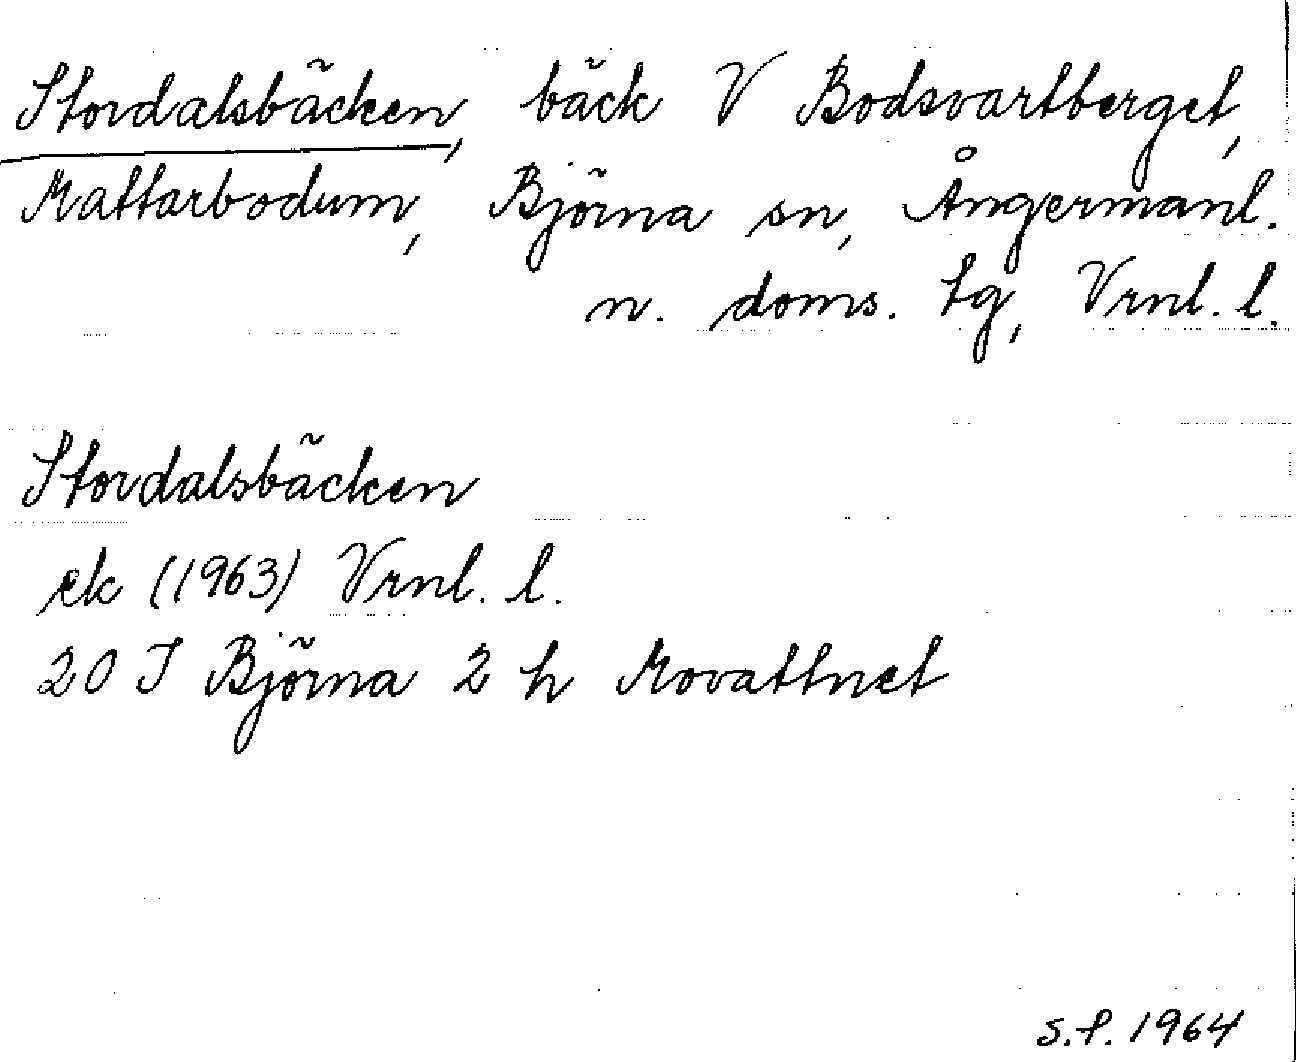 Stordalsbäcken, bäck V Bodsvartberget,
Mattarbodum, Björna sn, Ångermanl.
n. doms. tg, Vrnl. l.
Stordalsbäcken
ek (1963) Vrnl. l.
20 I Björna 2 h Movattnet
S.f. 1964